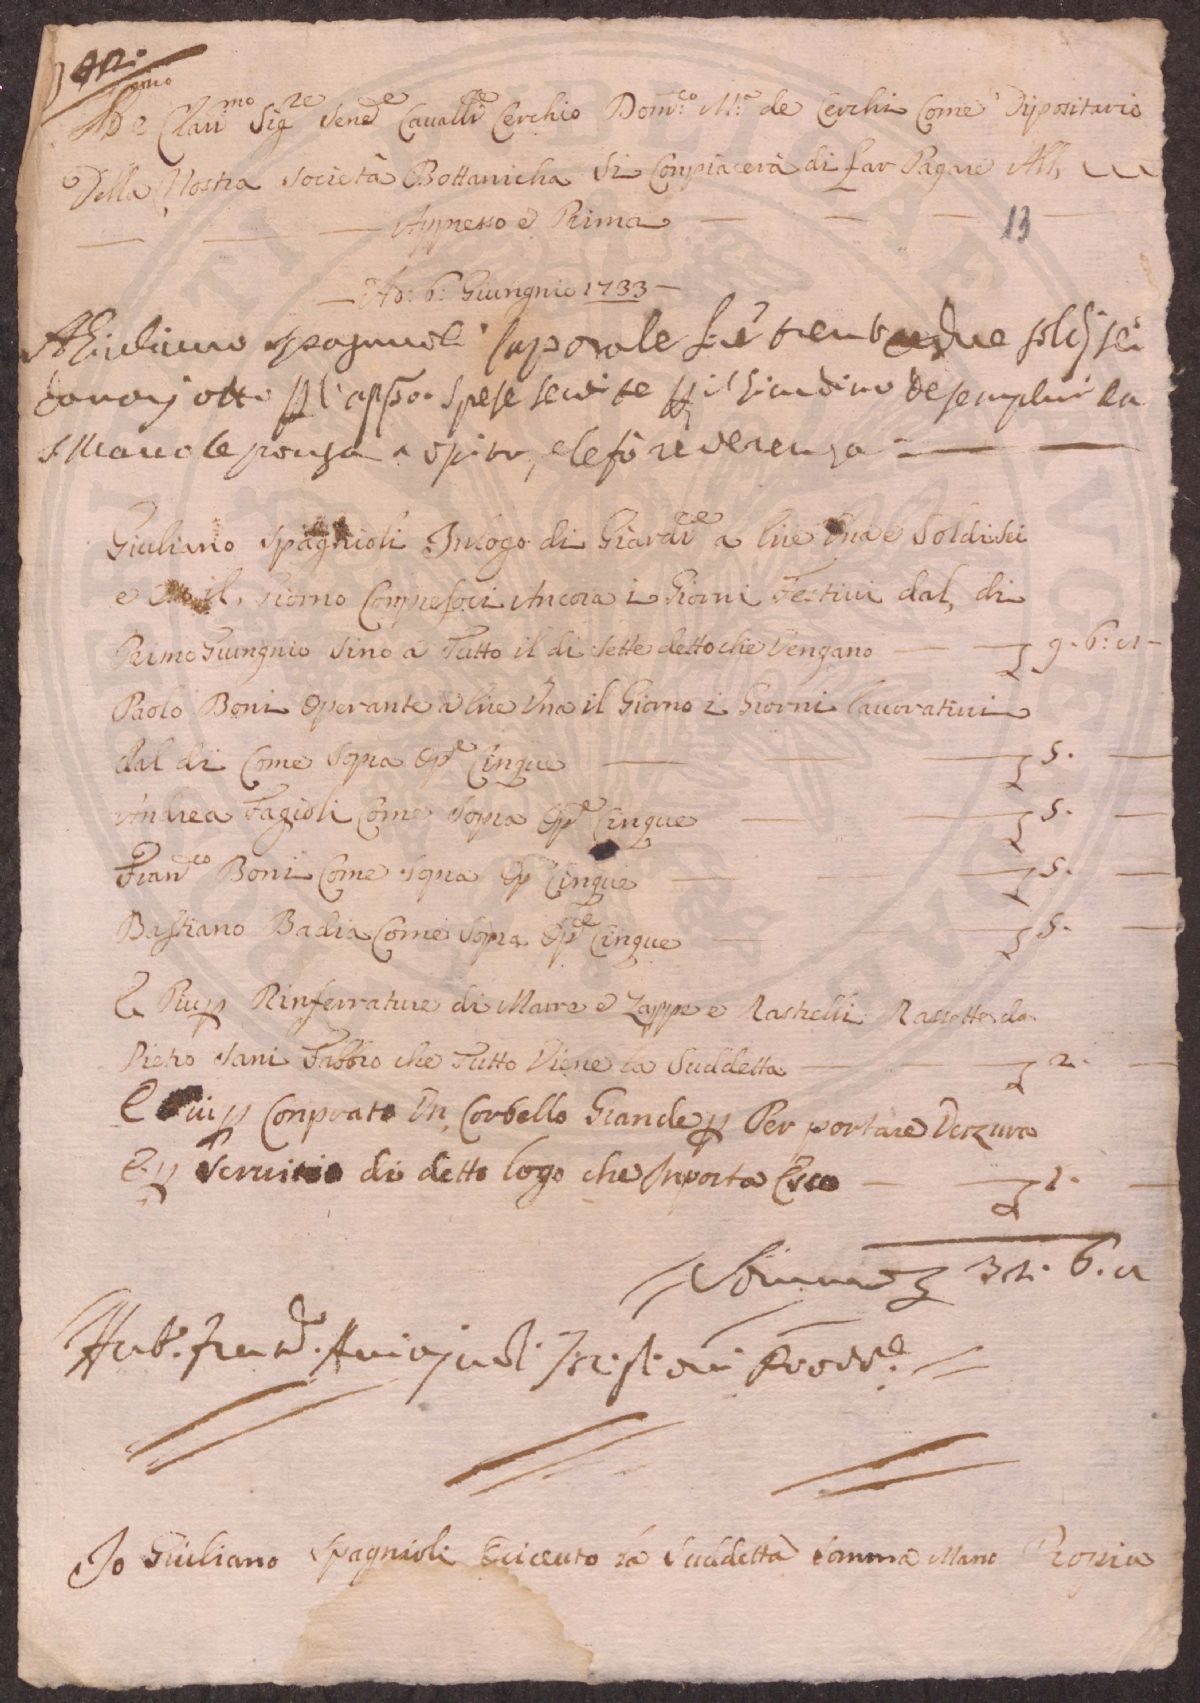 Clarmo Sigre Sene Cavallre Cerchio Domco Ma de Cerchi Come Dipositario
Della Nostra Società Bottanicha Si Conpiacerà di far Pagare All
Appresso e Prima
13
Ad: 6: Giungnio 1733
A Giuliano Spagnioli Caporale lire trentadue soldi sei
denari otto p l'appo spese seguite p il Giardino de semplici
Giuliano Spagnioli Inlogo di Giardre a lire Una e Soldi sei
e il Giorno Conpresoci Ancora i Giorni Festivi dal, di
Primo Giungnio Sino a Tutto il di Sette detto che Vengano 9. 6: 8
Paolo Boni Operante a lire Una il Giorno i Giorni lavorativi
dal di Come Sopra Ope Cinque 5.
Andrea Fagioli Come Sopra Ope Cinque 5.
Franco Boni Come Sopra Ope Cinque 5.
Bastiano Badia Come Sopra Ope Cinque 5.
E Piu p Rinferrature di Marre e Zappe e Rastelli Rassette da
Pietro Sani Fabbro che Tutto Viene la Suddetta 2.
E piu p Conprato Un, Corbello Grande p Per portare Verzura
E p Servitio di detto logo che Inporta 1.
Somma 32. 6. 8
Io Giuliano Spagnioli Riceuto la Suddetta Somma Mano Propia